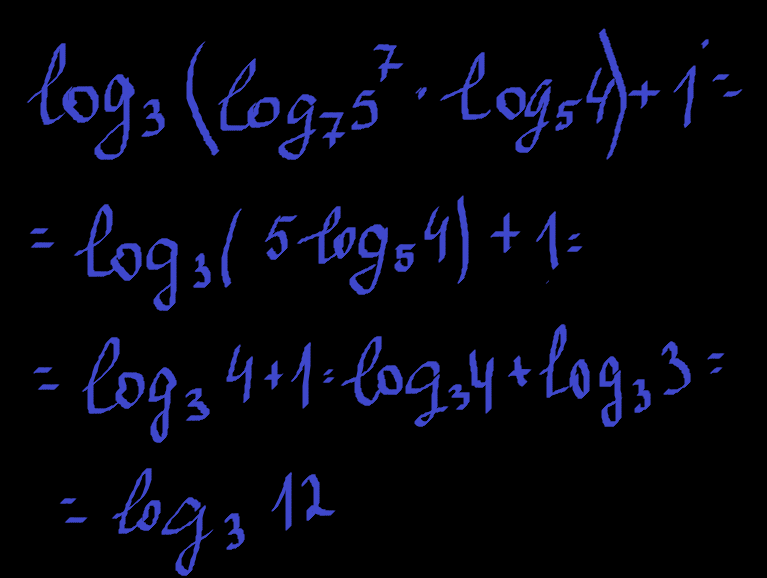 log₃(log₇5⁷ · log₅4) + 1 =
= log₃(5log₅4) + 1 =
= log₃4 + 1 = log₃4 + log₃3 =
= log₃12